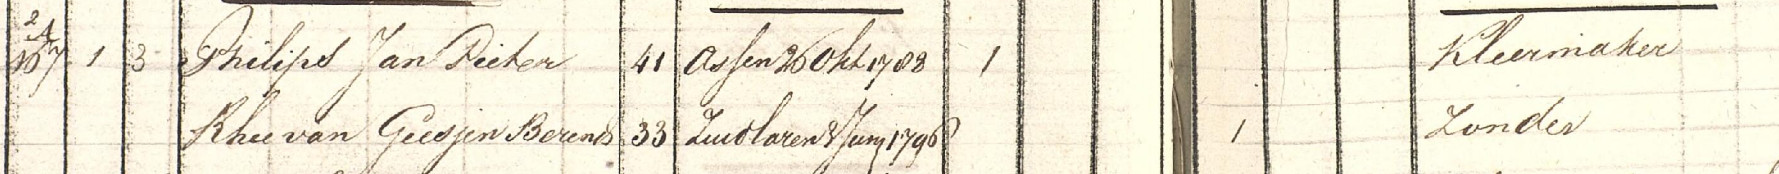 1 3 Philips Jan Pieter 41 Assen 26 Okt 1788 1 Kleermaker
Rhee van Geesjen Berends 33 Zuidlaren 8 Juny 1796 1 Zonder